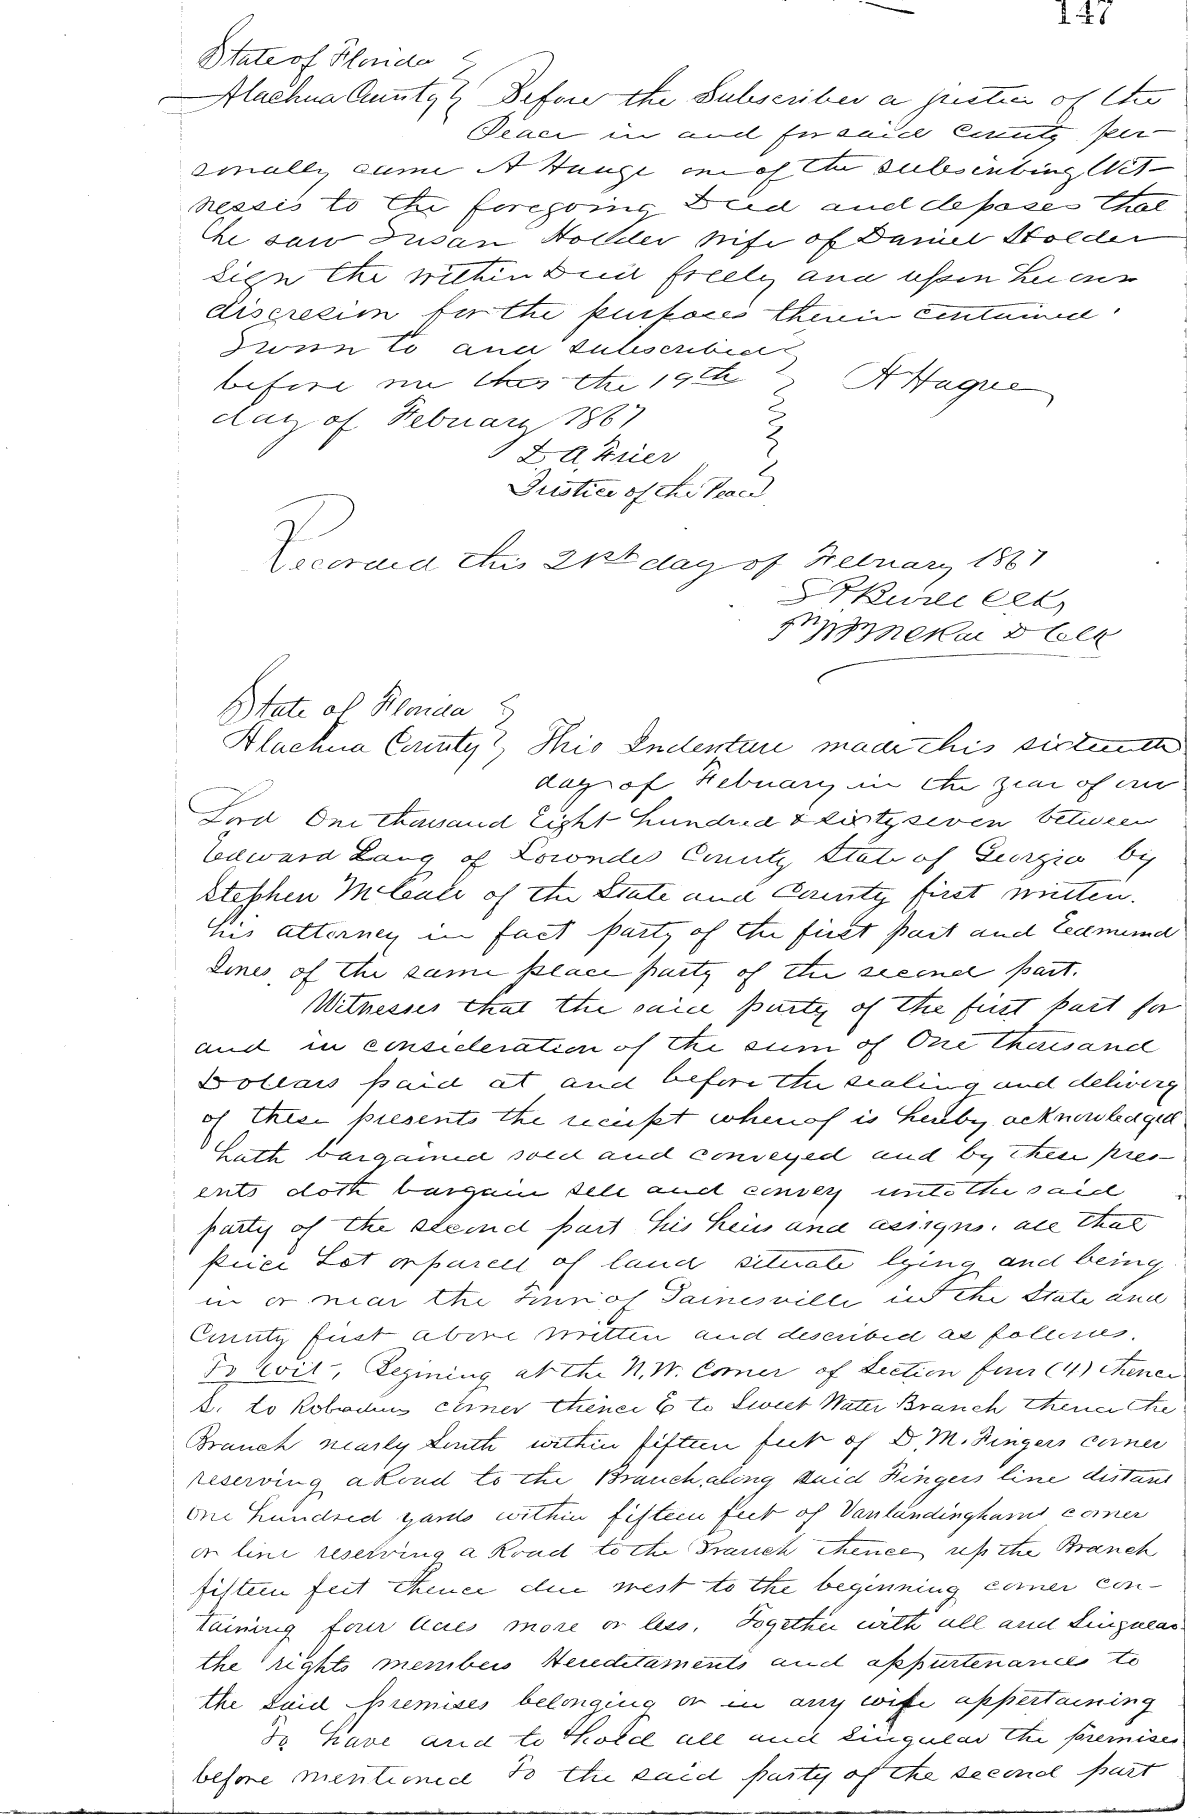 147
State of Florida
Alachua County Before the Subscriber a justice of the
Peace in and for said County per-
sonally came A Hauge one of the subscribing Wit-
nesses to the foregoing Deed and deposes that
he saw Susan Holder wife of Daniel Holder
Sign the within Deed freely and upon her own
discresion for the purposes therein contained.
Sworn to and subscribed
before me this the 19th A Hague
day of February 1867
L A
Justice of the Peace
Recorded this 21st day of February 1867
Clk
D Clk
State of Florida
Alachua County This Indenture made this sixteenth
day of February in the year of our
Lord One thousand Eight hundred & sixty seven between
Edward Lang of Lowndes County State of Georgia by
Stephen McCall of the State and County first written.
his attorney in fact party of the first part and Edmund
of the same place party of the second part.
Witnesses that the said party of the first part for
and in consideration of the sum of One thousand
Dollars paid at and before the sealing and delivery
of these presents the receipt whereof is hereby acknowledged
hath bargained sold and conveyed and by these pres-
ents doth bargain sell and convey unto the said
party of the second part his heirs and assigns. all that
piece Lot or parcell of land situate lying and being
in or near the Town of Gainesville in the State and
County first above written and described as follows.
To wit, Begining at the N.W. Corner of Section four (4) thence
S. to corner thence E to Sweet Water Branch thence the
Branch nearly South within fifteen feet of D. M. Ringers corner
reserving a Road to the Branch, along said Ringers line distant
one hundred yards within fifteen feet of Vanlandinghams corner
or line reserving a Road to the Branch thence up the Branch
fifteen feet thence due west to the beginning corner con-
taining four Acres more or less. Together with all and Singular
the rights members Hereditaments and appurtenances to
the said premises belonging or in any wise appertaining
To have and to hold all and singular the premises
before mentioned To the said party of the second part